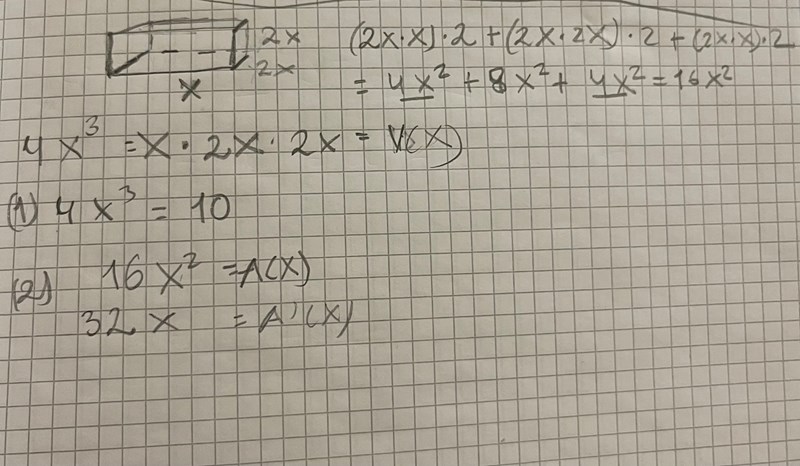 2x (2x·x)·2+(2x·2x)·2+(2x·x)·2
2x = 4x² + 8x² + 4x² = 16x²
x
4x³ = x · 2x · 2x = V(x)
(1) 4x³ = 10
(2) 16x² = A(x)
32x = A'(x)